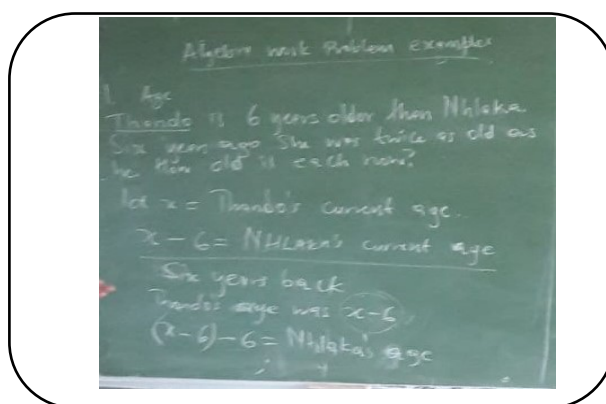 Algebra work Problem examples
1. Age
Thando is 6 years older than Nhlaka
Six years ago She was twice as old as
he How old is each now?
let x = Thando's current age.
x - 6 = NHLAKA's current age
Six years back
Thando's age was x-6,
(x-6)-6 = Nhlaka's age